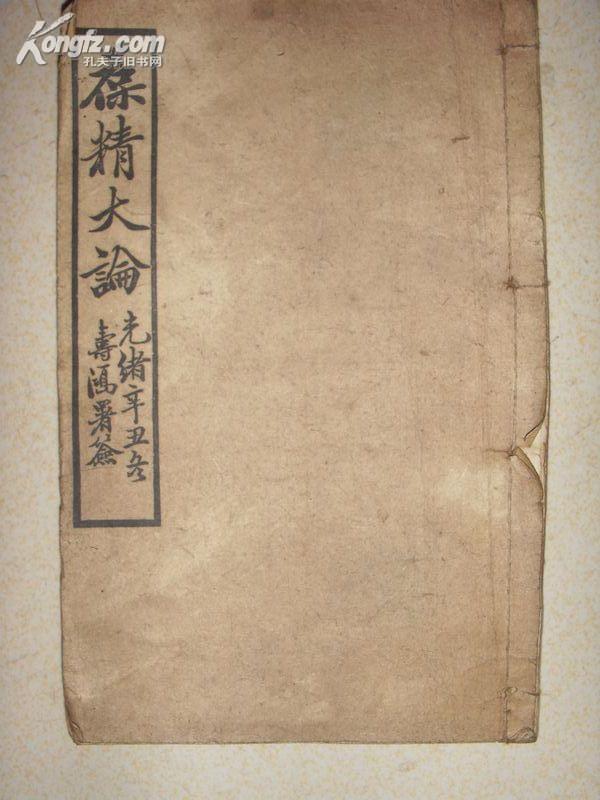 Kongfz.com
孔夫子旧书网
葆精大論
光緒辛丑冬
壽鴻署簽